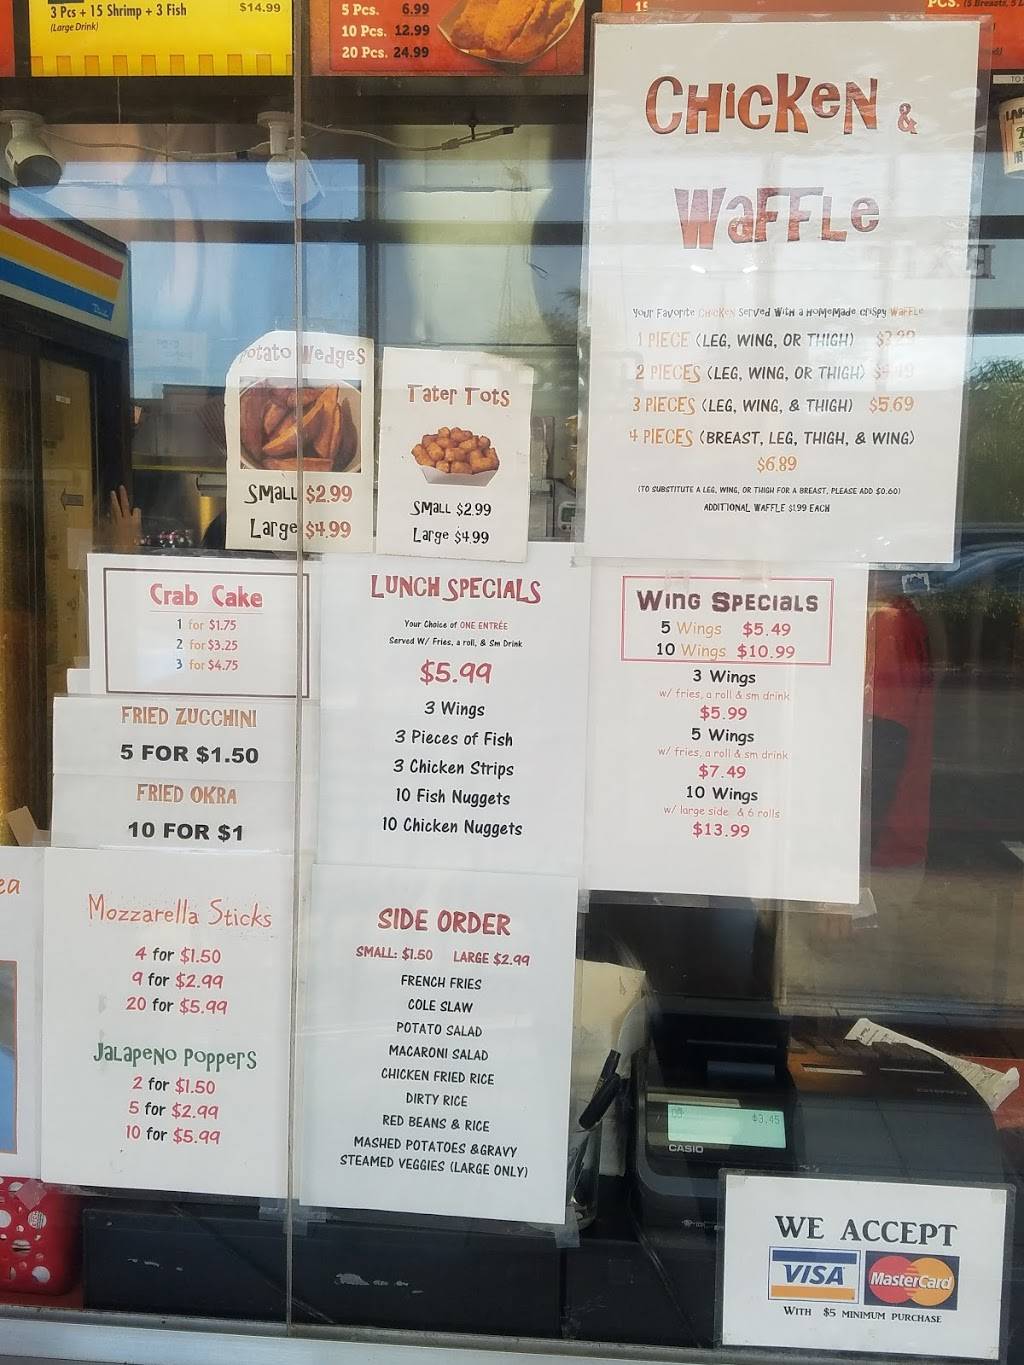 3 Pcs + 15 Shrimp + 3 Fish $14.99
(Large Drink)
5 Pcs. 6.99
10 Pcs. 12.99
20 Pcs. 24.99
CHicKeN &
WaFFLe
Your Favorite Chicken Served With a Homemade crispy Waffle
1 PIECE (LEG, WING, OR THIGH)
2 PIECES (LEG, WING, OR THIGH)
3 PIECES (LEG, WING, & THIGH) $5.69
4 PIECES (BREAST, LEG, THIGH, & WING)
$6.89
(TO SUBSTITUTE A LEG, WING, OR THIGH FOR A BREAST, PLEASE ADD $0.60)
ADDITIONAL WAFFLE $1.99 EACH
Potato Wedges
Small $2.99
Large $4.99
Tater Tots
Small $2.99
Large $4.99
Crab Cake
1 for $1.75
2 for $3.25
3 for $4.75
FRIED ZUCCHINI
5 FOR $1.50
FRIED OKRA
10 FOR $1
Mozzarella Sticks
4 for $1.50
9 for $2.99
20 for $5.99
Jalapeno Poppers
2 for $1.50
5 for $2.99
10 for $5.99
LUNCH SPECIALS
Your Choice of ONE ENTRÉE
Served W/ Fries, a roll, & Sm Drink
$5.99
3 Wings
3 Pieces of Fish
3 Chicken Strips
10 Fish Nuggets
10 Chicken Nuggets
SIDE ORDER
SMALL: $1.50 LARGE $2.99
FRENCH FRIES
COLE SLAW
POTATO SALAD
MACARONI SALAD
CHICKEN FRIED RICE
DIRTY RICE
RED BEANS & RICE
MASHED POTATOES &GRAVY
STEAMED VEGGIES (LARGE ONLY)
Wing Specials
5 Wings $5.49
10 Wings $10.99
3 Wings
w/ fries, a roll & sm drink
$5.99
5 Wings
w/ fries, a roll & sm drink
$7.49
10 Wings
w/ large side & 6 rolls
$13.99
$3.45
CASIO
WE ACCEPT
VISA MasterCard
WITH $5 MINIMUM PURCHASE